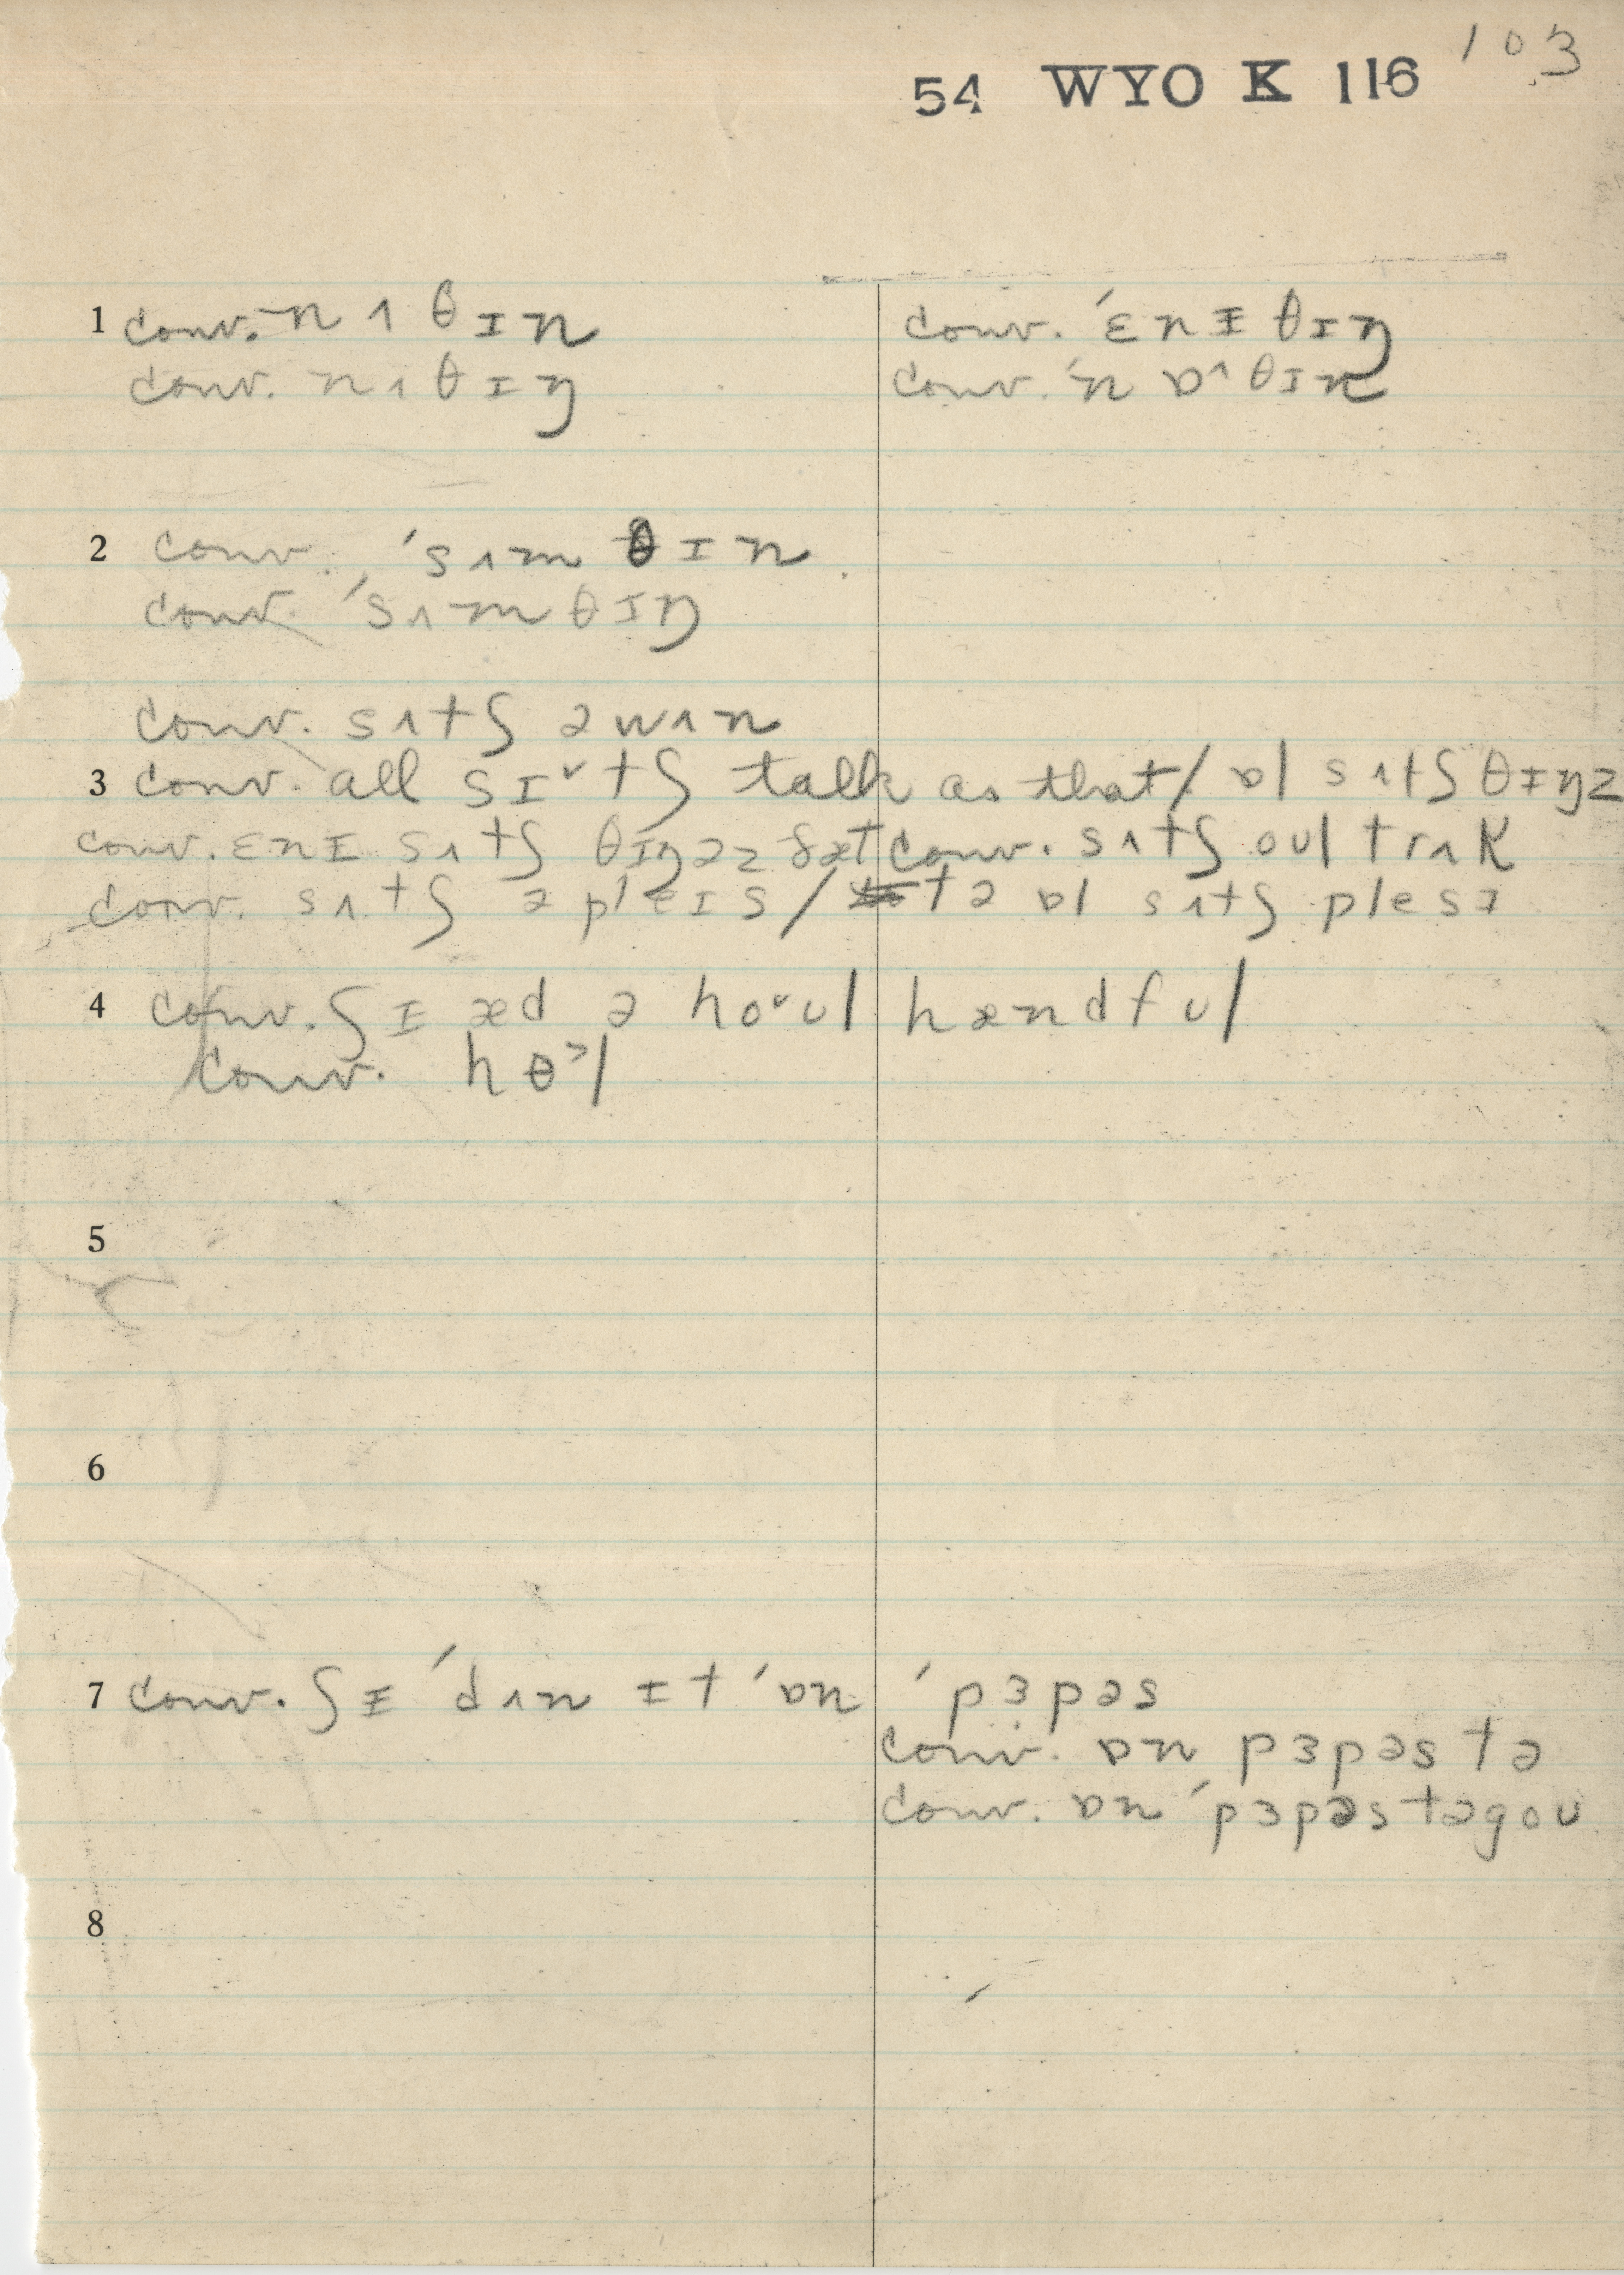 103
54 WYO K 116
1 conv. nʌθɪn conv. ˈɛnɪθɪŋ
conv. nʌθɪŋ conv. ˈnɒ^θɪn
2 conv. ˈsʌmθɪn
conv. ˈsʌmθɪŋ
conv. sʌtʃ ə wʌn
3 conv. all sɪ˅tʃ talk as that / ɒl sʌtʃ θɪŋz
conv. ɛnɪ sʌtʃ θɪŋ əz ðæt conv. sʌtʃ oul trʌk
conv. sʌtʃ ə pleɪs / tə ɒl sʌtʃ plesɪ
4 conv. ʃɪ æd ə ho˅ul hændful
conv. hɵ˃l
5
6
7 conv. ʃɪ ˈdʌn ɪt ˈɒn ˈpɜpəs
conv. ɒn pɜpəs tə
conv. ɒn ˈpɜpəs təgou
8